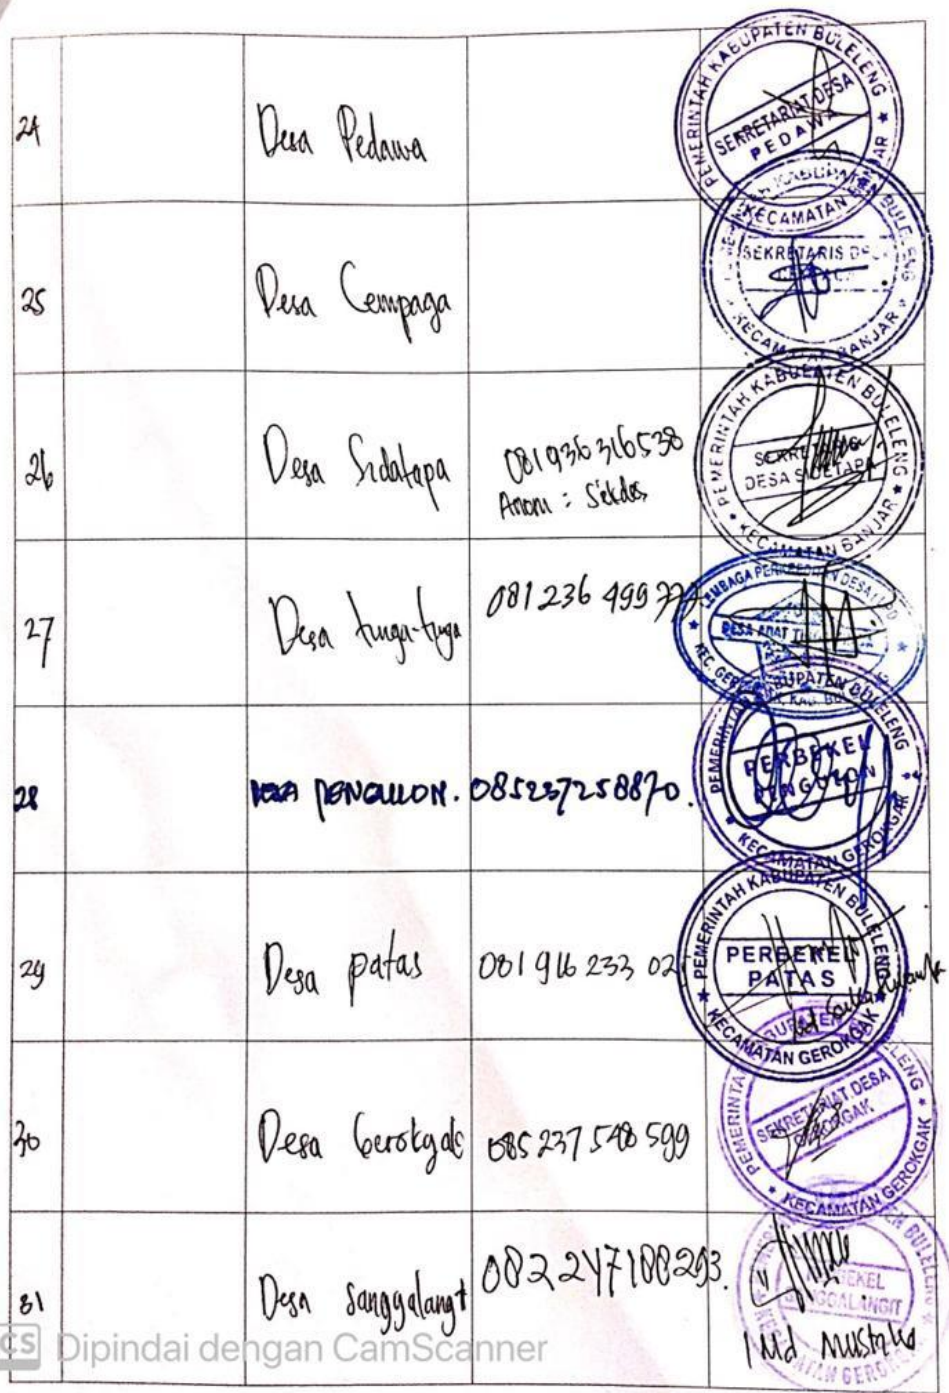 24 Desa Pedawa
PEMERINTAH KABUPATEN BULELENG
SEKRETARIAT DESA
PEDAWA
KECAMATAN BANJAR
25 Desa Cempaga
KABUPATEN BULELENG
SEKRETARIS DESA
KECAMATAN BANJAR
26 Desa Sidatapa 081936316538
Anom : Sekdes
PEMERINTAH KABUPATEN BULELENG
DESA SIDETAPA
KECAMATAN BANJAR
27 Desa tinga-tinga 081236 499
LEMBAGA PERKREDITAN DESA (LPD)
DESA ADAT
KEC. GEROKGAK, KAB. BULELENG
28 DESA PENGULON. 085237258870.
PEMERINTAH KABUPATEN BULELENG
PERBEKEL
PENGULON
KECAMATAN GEROKGAK
29 Desa patas 081 916 233 02
PEMERINTAH KABUPATEN BULELENG
PERBEKEL
PATAS
KECAMATAN GEROKGAK
30 Desa Gerokgak 085 237 548 599
PEMERINTAH KABUPATEN BULELENG
SEKRETARIAT DESA
GEROKGAK
KECAMATAN GEROKGAK
31 Desa Sanggalangit 082 247188293.
BULELENG
PERBEKEL
SANGGALANGIT
KECAMATAN GEROKGAK
CS Dipindai dengan CamScanner